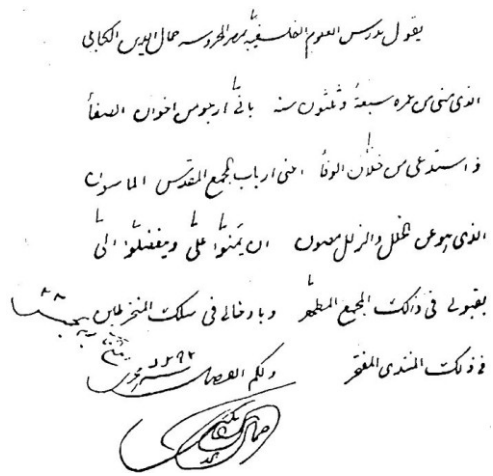 يقول مدرس العلوم الفلسفية بمصر المحروسة جمال الدين الكابلي
الذي مضى من عمره سبعة وثلثون سنة باني ارجو من اخوان الصفا
و استدعى من خلان الوفا اعنى ارباب المجمع المقدس الماسون
الذي هو عن الخلل والزلل مصون ان يمنوا على ويتفضلوا الى
بقبولى فى ذالك المجمع المطهر وبادخالى فى سلك المنخرطين
فى ذلك المنتدى المفتخر ولكم الفضل
۱۲۹۲
جمال